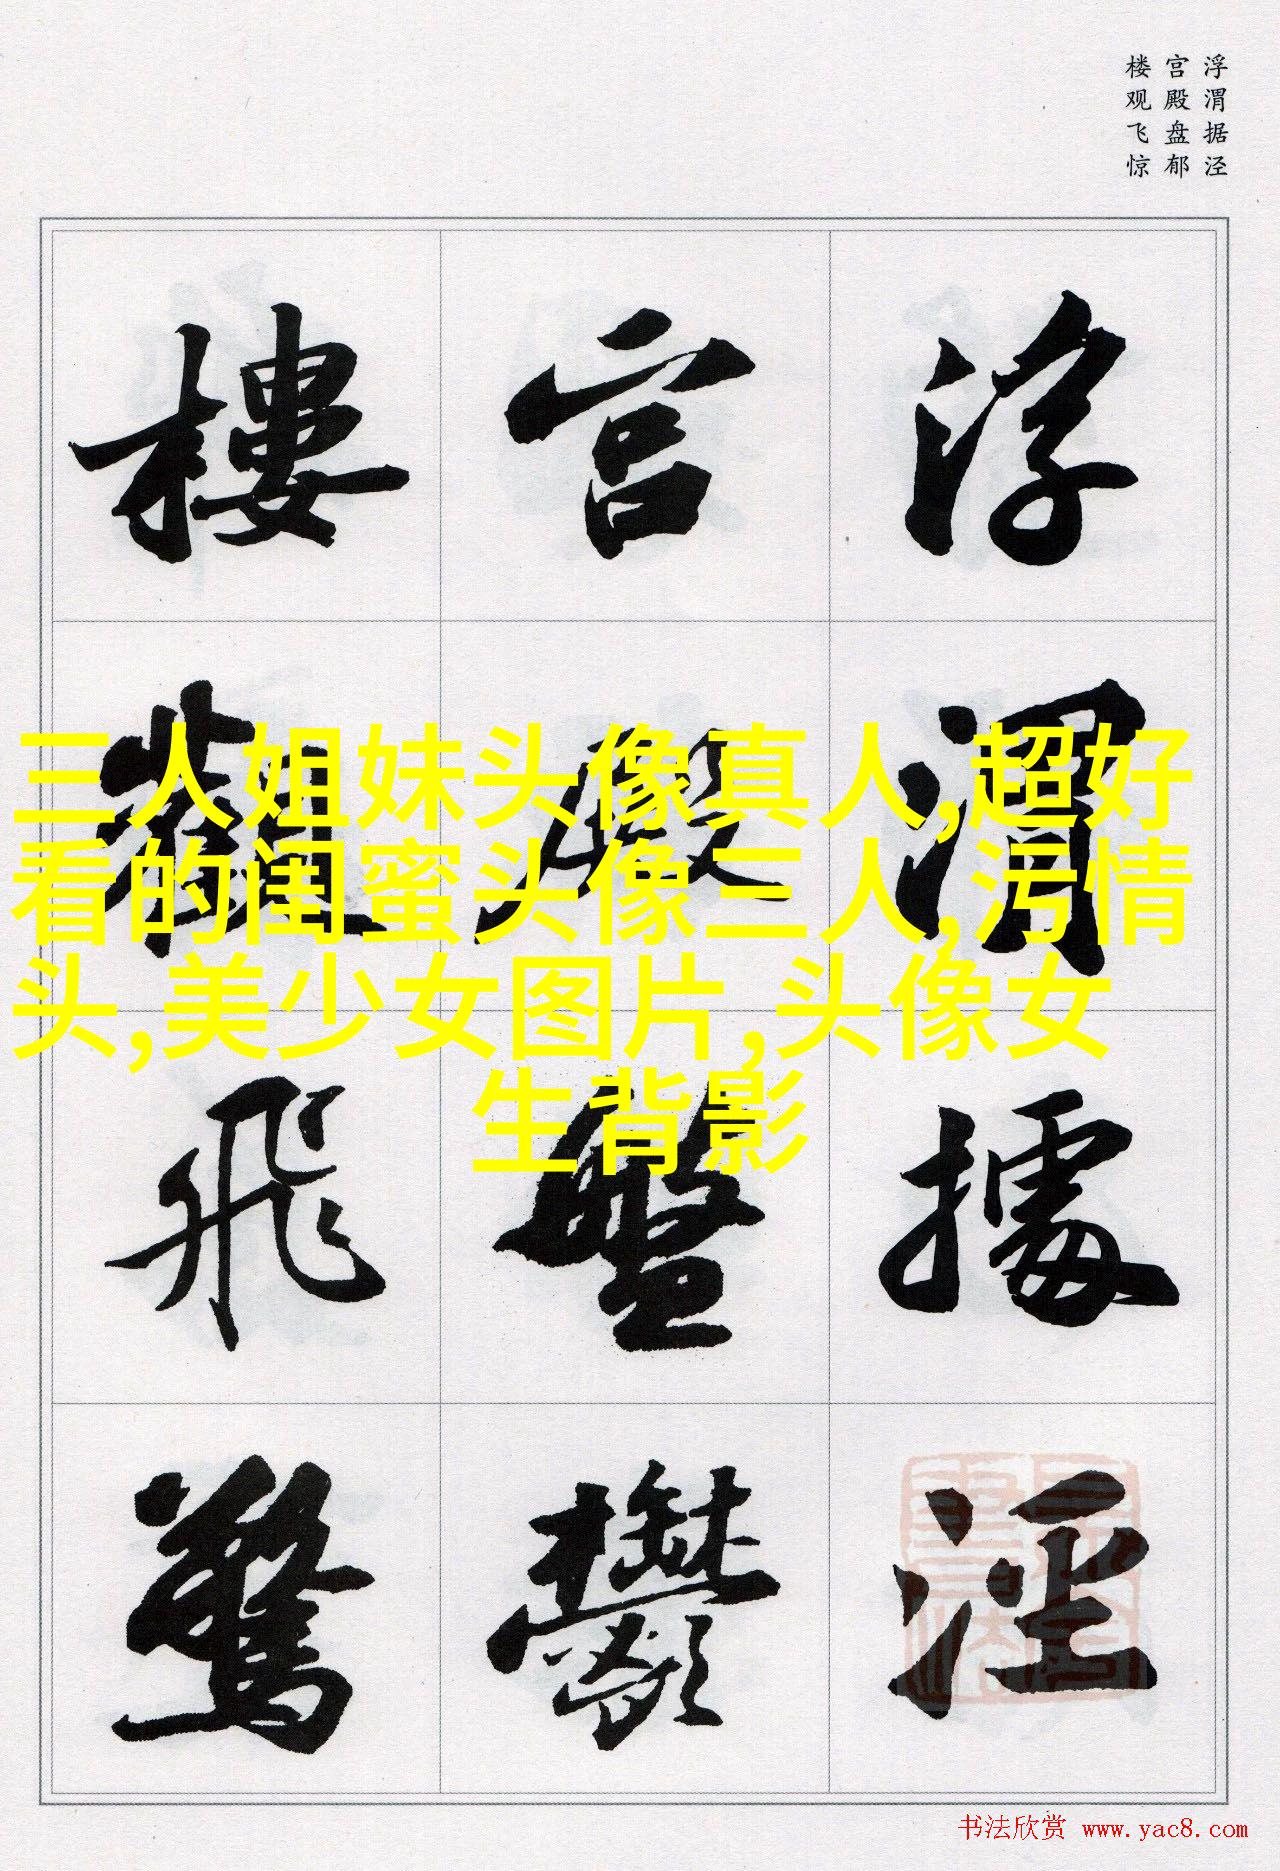 浮渭据泾
宫殿盘郁
楼观飞惊
浮渭據涇
宫殿盤鬱
樓觀飛驚
三人姐妹头像真人,超好
看的闺蜜头像三人,污情
头,美少女图片,头像女
生背影
书法欣赏 www.yac8.com